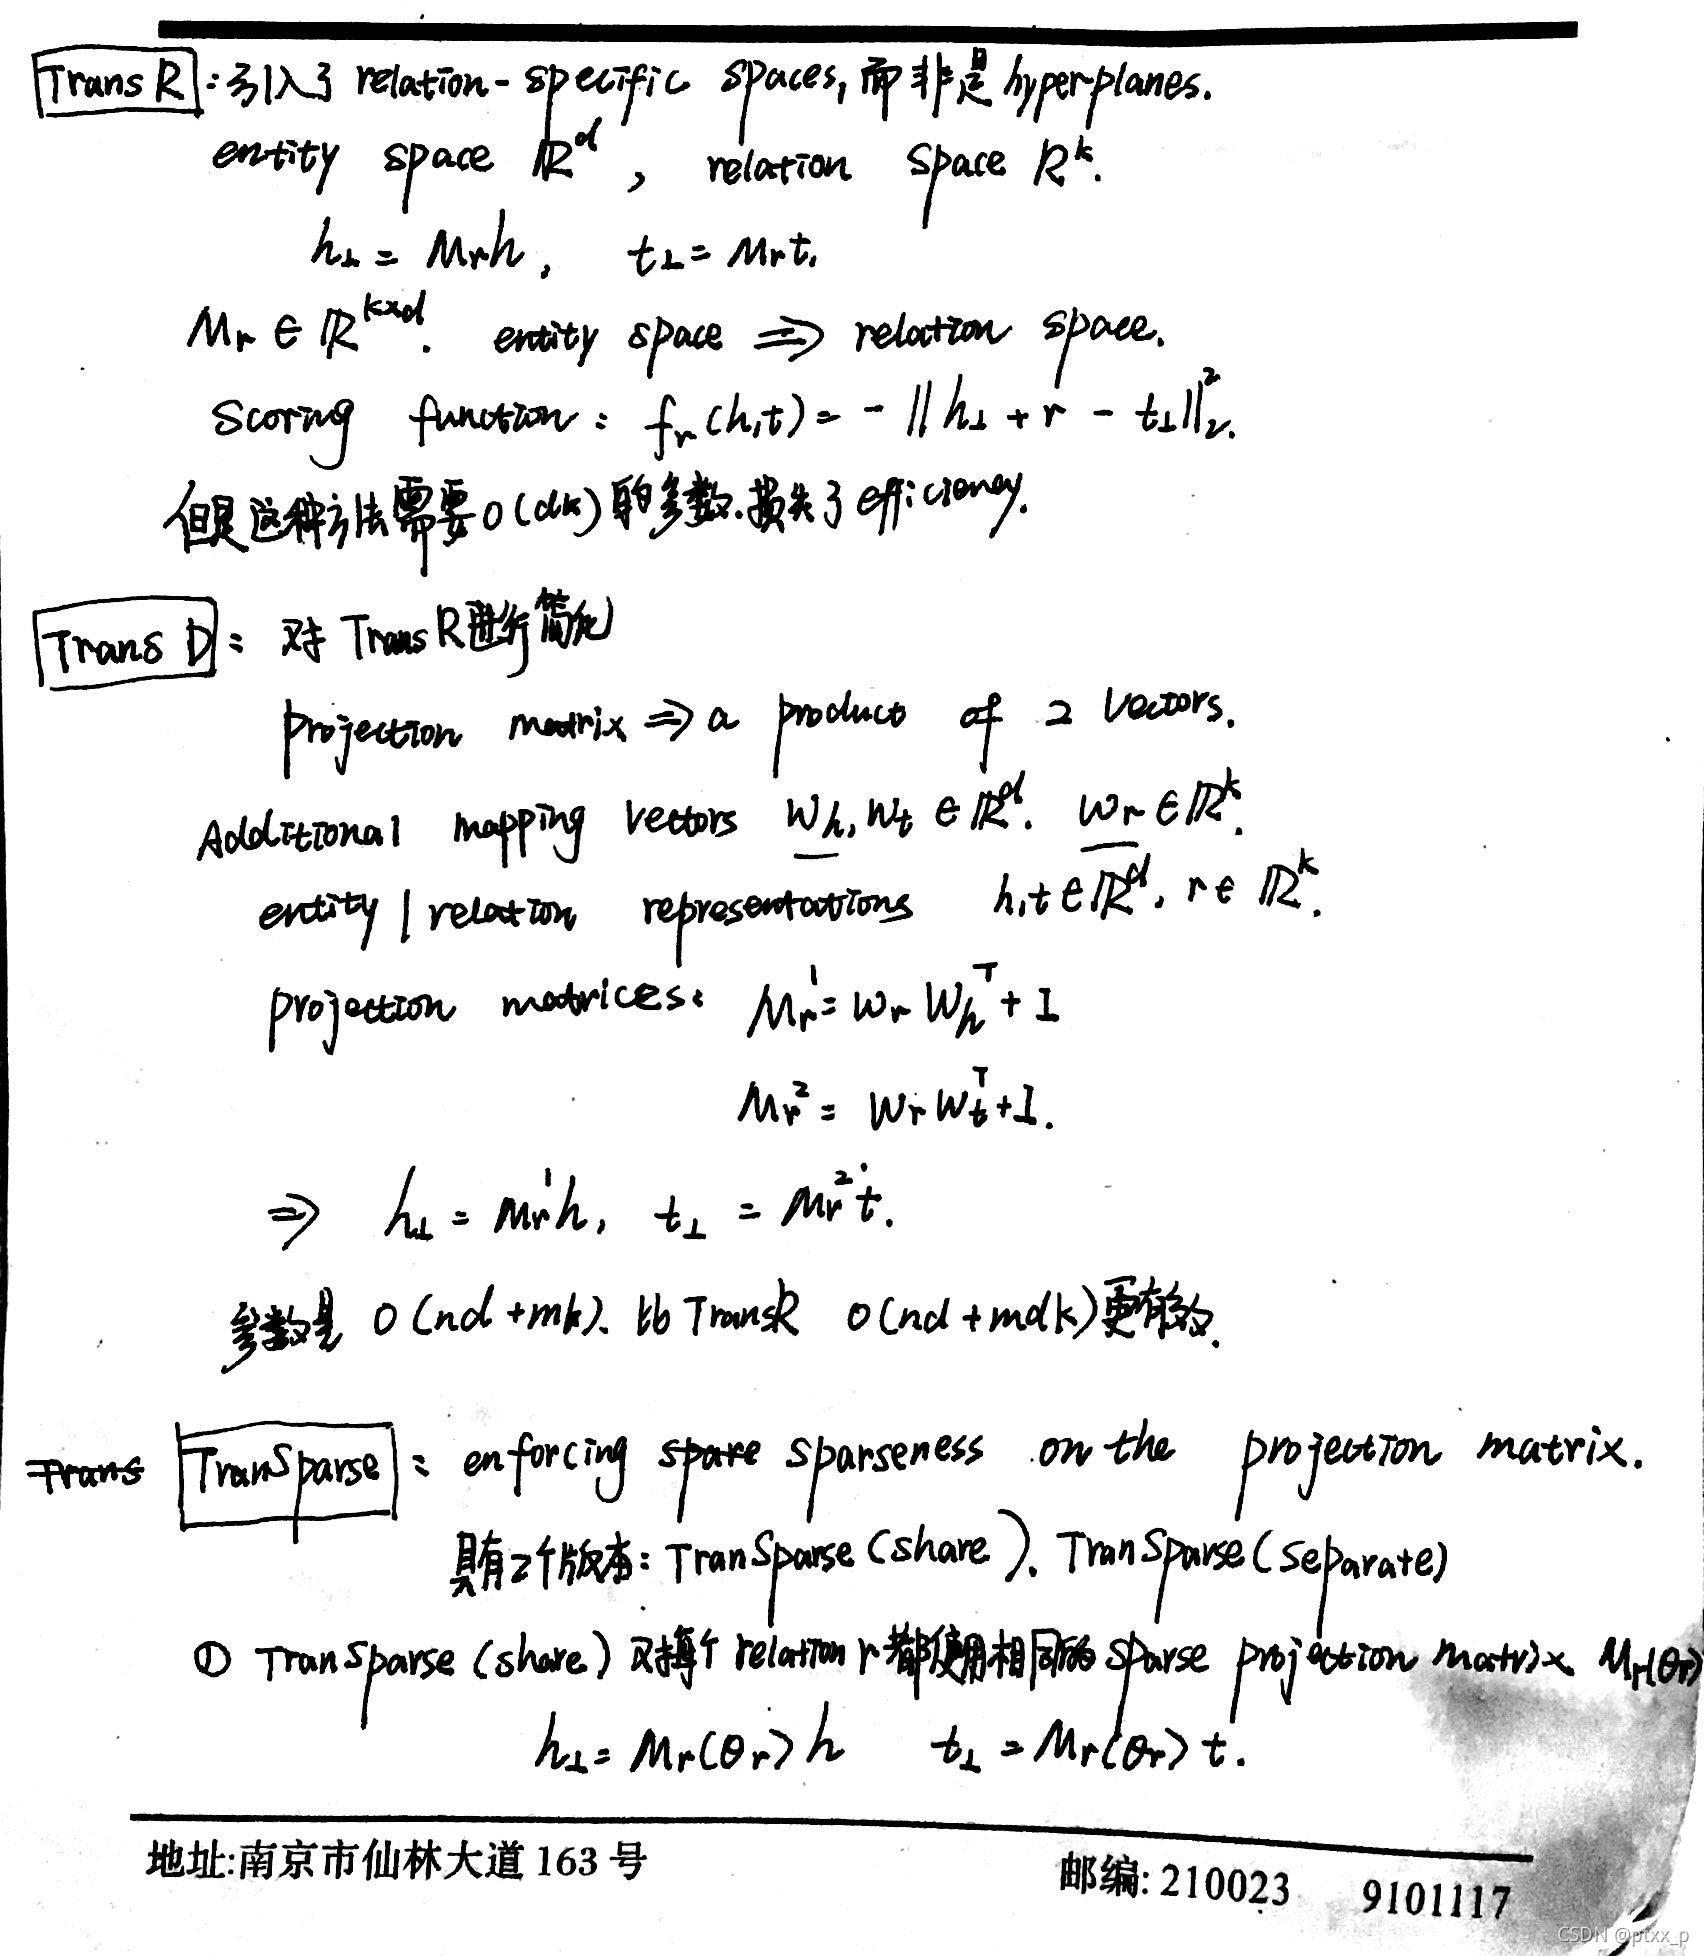 TransR : 引入了 relation-specific spaces, 而非是 hyperplanes.
entity space ℝ^d , relation space ℝ^k.
h⊥ = Mrh , t⊥ = Mrt.
Mr ∈ ℝ^{k×d}. entity space ⇒ relation space.
Scoring function : fr(h,t) = - ‖h⊥ + r - t⊥‖₂².
但是这种方法需要 O(dk) 的参数. 损失了 efficiency.
TransD : 对 TransR 进行简化
projection matrix ⇒ a product of 2 vectors.
Additional mapping vectors Wh, Wt ∈ ℝ^d. Wr ∈ ℝ^k.
entity / relation representations h,t ∈ ℝ^d, r ∈ ℝ^k.
projection matrices: Mr^1 = Wr Wh^T + I
Mr^2 = Wr Wt^T + I.
⇒ h⊥ = Mr^1 h, t⊥ = Mr^2 t.
参数是 O(nd + mk). 比 TransR O(nd + mdk) 更有效.
Trans TranSparse : enforcing spare sparseness on the projection matrix.
具有2个版本: TranSparse (share). TranSparse (separate)
① TranSparse (share) 对每个 relation r 都使用相同的 sparse projection matrix Mr(θr)
h⊥ = Mr(θr) h t⊥ = Mr(θr) t.
地址:南京市仙林大道 163 号 邮编: 210023 9101117
CSDN @ptxx_p